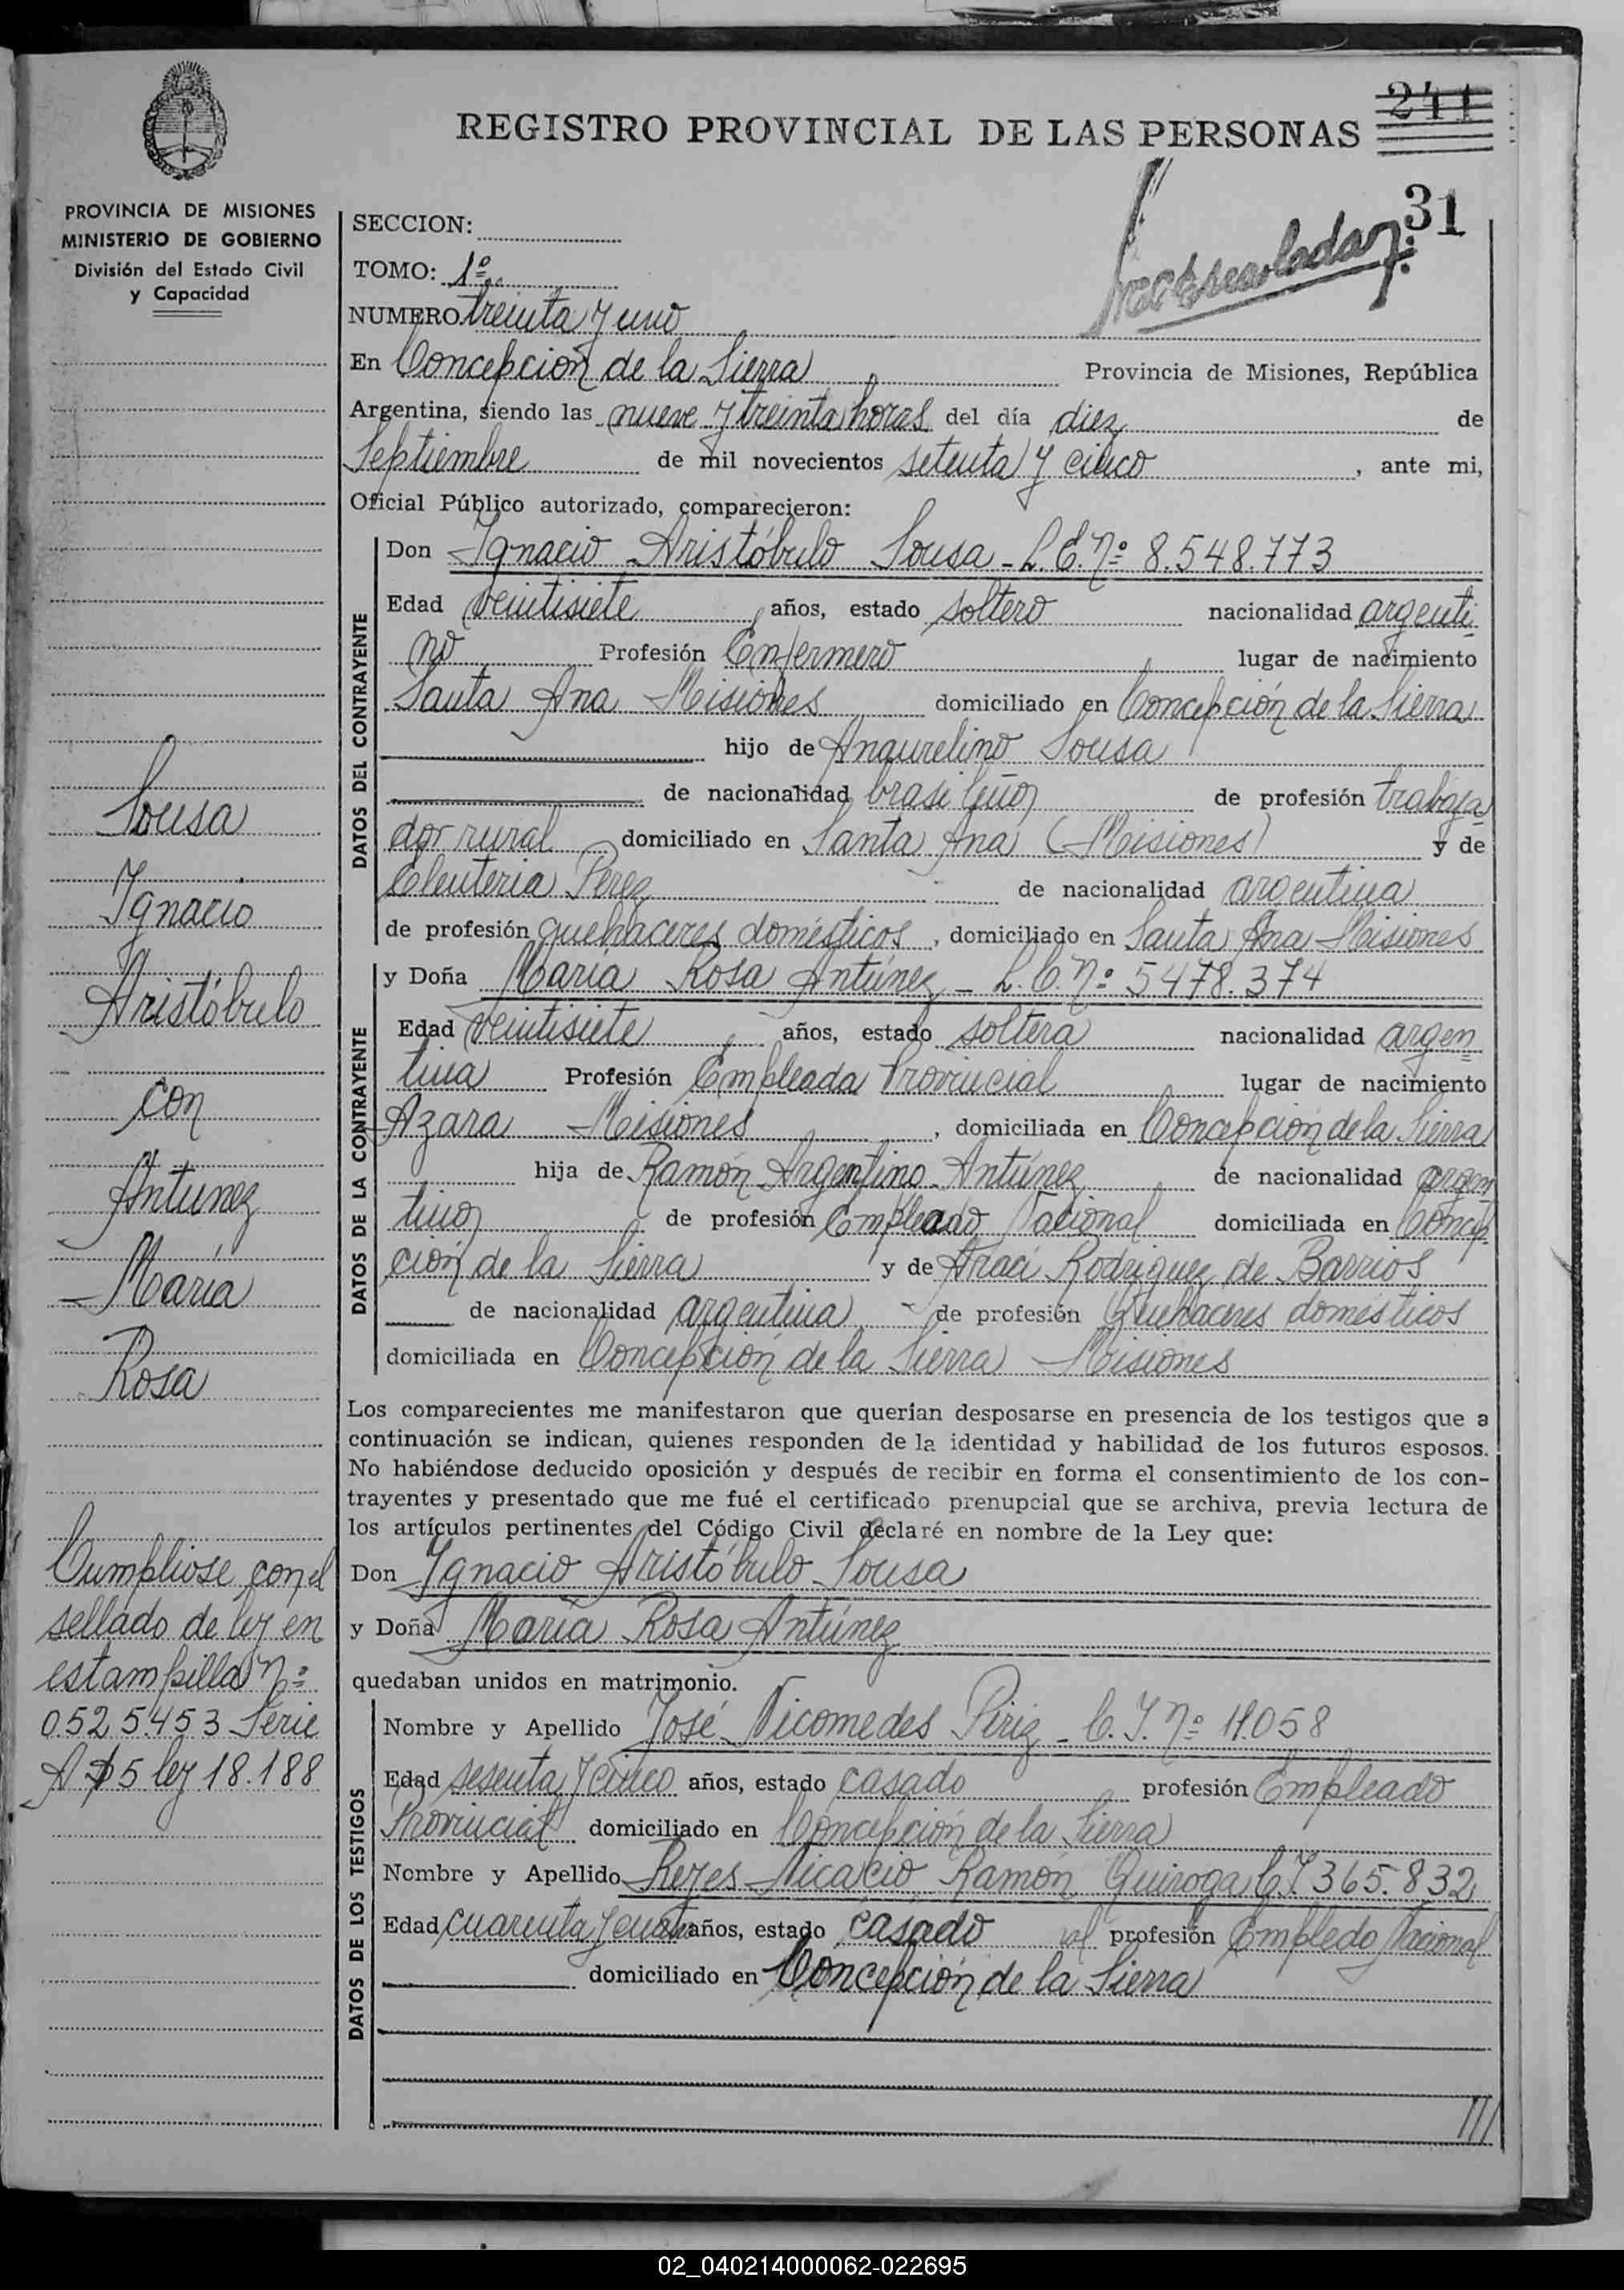 244
REGISTRO PROVINCIAL DE LAS PERSONAS
31
PROVINCIA DE MISIONES
MINISTERIO DE GOBIERNO
División del Estado Civil
y Capacidad
Sousa
Ignacio
Aristóbulo
con
Antunez
María
Rosa
Cumpliose con el
sellado de ley en
estampilla nº
0.525.453 Serie
A $5 ley 18.188
SECCION:
TOMO: 1º
NUMERO treinta y uno
En Concepción de la Sierra Provincia de Misiones, República
Argentina, siendo las nueve y treinta horas del día diez de
Septiembre de mil novecientos setenta y cinco, ante mi,
Oficial Público autorizado, comparecieron:
DATOS DEL CONTRAYENTE
Don Ignacio Aristóbulo Sousa - L.E. Nº 8.548.773
Edad veintisiete, años, estado soltero nacionalidad argenti
no Profesión Enfermero lugar de nacimiento
Santa Ana Misiones domiciliado en Concepción de la Sierra
hijo de Anaurelino Sousa
de nacionalidad brasileño de profesión trabaja
dor rural domiciliado en Santa Ana (Misiones) y de
Eleuteria Perez de nacionalidad argentina
de profesión quehaceres domésticos, domiciliado en Santa Ana Misiones
DATOS DE LA CONTRAYENTE
y Doña María Rosa Antúnez - L.C. Nº 5478.374
Edad veintisiete, años, estado soltera nacionalidad argen
tina Profesión Empleada Provincial lugar de nacimiento
Azara Misiones, domiciliada en Concepción de la Sierra
hija de Ramón Argentino Antúnez de nacionalidad argen
tino de profesión Empleado Nacional domiciliada en Concep
ción de la Sierra y de Araci Rodriguez de Barrios
de nacionalidad argentina de profesión Quehaceres domésticos
domiciliada en Concepción de la Sierra Misiones
Los comparecientes me manifestaron que querían desposarse en presencia de los testigos que a
continuación se indican, quienes responden de la identidad y habilidad de los futuros esposos.
No habiéndose deducido oposición y después de recibir en forma el consentimiento de los con-
trayentes y presentado que me fué el certificado prenupcial que se archiva, previa lectura de
los artículos pertinentes del Código Civil declaré en nombre de la Ley que:
Don Ignacio Aristóbulo Sousa
y Doña María Rosa Antúnez
quedaban unidos en matrimonio.
DATOS DE LOS TESTIGOS
Nombre y Apellido José Nicomedes Piriz - C.I. Nº 11.058
Edad sesenta y cinco años, estado casado profesión Empleado
Provincial domiciliado en Concepción de la Sierra
Nombre y Apellido Reyes Nicacio Ramón Quiroga C.I. 365.832
Edad cuarenta y años, estado casado profesión Empledo Nacional
domiciliado en Concepción de la Sierra
02_040214000062-022695